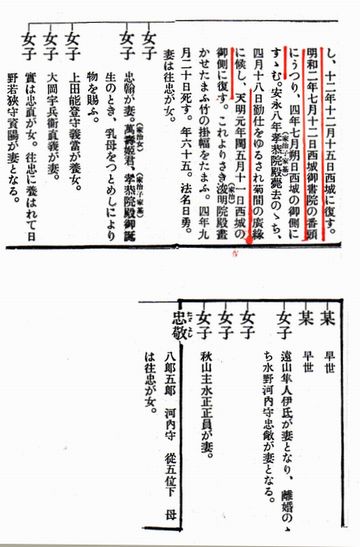 し、十二年十二月十五日西城に復す。
明和二年七月十二日西城御書院の番頭
にうつり、四年七月朔日西城の御側に
すゝむ。安永八年孝恭院殿薨去のゝち、
四月十八日勤仕をゆるされ菊間の廣緣
に候し、天明元年閏五月十一日西城の
御側に復す。これよりさき浚明院殿畫
かせたまふ竹の掛幅をたまふ。四年九
月二十日死す。年六十五。法名日勇。
妻は往忠が女。
女子
女子
忠翰が妻。萬壽姬君、孝恭院殿御誕
生のとき、乳母をつとめしにより
物を賜ふ。
女子
上田能登守義當が養女。
女子
大岡宇兵衞直義が妻。
女子
實は忠直が女。往忠に養はれて日
野若狹守資陽が妻となる。
某
早世
某
早世
女子
遠山隼人伊氏が妻となり、離婚のゝ
ち水野河内守忠敵が妻となる。
女子
女子
女子
秋山主水正正員が妻。
忠敬
八郎五郎 河内守 從五位下 母
は往忠が女。